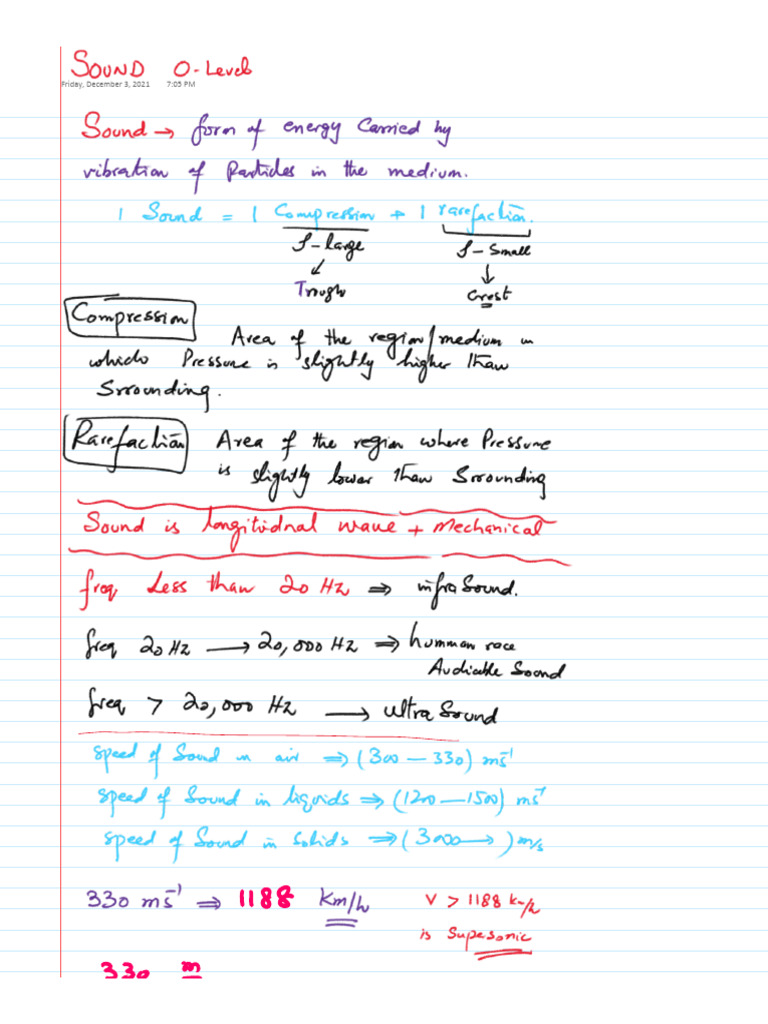 SOUND O-Level
Friday, December 3, 2021 7:05 PM
Sound → form of energy Carried by
vibration of Particles in the medium.
1 Sound = 1 Compression + 1 rarefaction.
f-large f-small
↙ ↓
Trough Crest
Compression Area of the region/medium in
which Pressure is slightly higher than
Srrounding.
Rarefaction Area of the region where Pressure
is slightly lower than Srrounding
Sound is longitidnal wave + Mechanical
freq Less than 20 Hz ⇒ infra Sound.
freq 20 Hz → 20,000 Hz ⇒ humman race
Audicable Sound
freq > 20,000 Hz → ultra Sound
speed of Sound in air ⇒ (300 – 330) ms⁻¹
speed of Sound in liquids ⇒ (1200 – 1500) ms⁻¹
speed of Sound in solids ⇒ (3000 → ) m/s
330 ms⁻¹ ⇒ 1188 Km/h V > 1188 km/h
is Supesonic
330 m